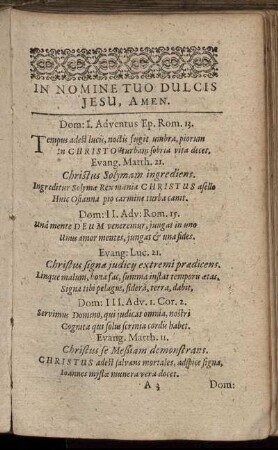 IN NOMINE TUO DULCIS
JESU, AMEN.
Dom: I. Adventus Ep. Rom. 13.
Tempus adest lucis, noctis fugit umbra, piorum
in CHRISTO turbam sobria vita decet.
Evang. Matth. 21.
Christus Solymam ingrediens.
Ingreditur Solymæ Rex mœnia CHRISTUS asello
Huic Osianna pio carmine turba canit.
Dom: II. Adv: Rom. 15.
Unâ mente DEUM veneremur, jungat in uno
Unus amor mentes, jungat & una fides.
Evang: Luc. 21.
Christus signa judicij extremi prædicens.
Linque malum, bona fac, summa instat temporis ætas,
Signa tibi pelagus, siderâ, terra, dabit,
Dom: III. Adv. 1. Cor. 2.
Servimus Domino, qui judicat omnia, nostri
Cognita qui solus scrinia cordis habet.
Evang. Matth. 11.
Christus se Messiam demonstrans.
CHRISTUS adest salvans mortales, adspice signa,
Ioannes mystæ munera vera docet.
A 3 Dom: